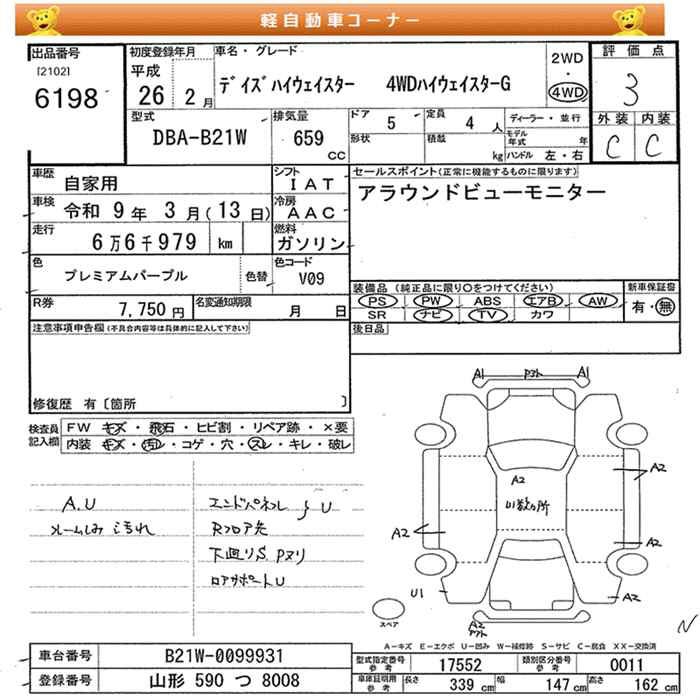 軽自動車コーナー
出品番号
[2102]
6198
初度登録年月
平成
26 2月
車名・グレード
デイズハイウェイスター 4WDハイウェイスターG
2WD
・
4WD
評価点
3
外装 内装
C C
型式
DBA-B21W
排気量
659
CC
ドア 5
形状
定員 4 人
積載 kg
ディーラー・並行
モデル年式 年
ハンドル 左・右
車歴 自家用
シフト IAT
車検 令和 9年 3月(13日)
冷房 AAC
走行 6万6千979 km
燃料 ガソリン
色 プレミアムパープル 色替
色コード V09
R券 7,750円
名変通知期限 月 日
セールスポイント(正常に機能するものに限ります)
アラウンドビューモニター
装備品(純正品に限り〇をつけてください)
新車保証書
PS PW ABS エアB AW
SR ナビ TV カワ
有・無
後日品
注意事項申告欄(不具合内容等は具体的に記入して下さい)
修復歴 有〔箇所 〕
検査員記入欄
FW キズ・飛石・ヒビ割・リペア跡・×要
内装 キズ・汚れ・コゲ・穴・スレ・キレ・破レ
A.U
ルームしみ 汚れ
エンドパネル U
Rフロア先
下廻りS Pヌリ
ロアサポートU
A1 A1
A2
U1数カ所
A2
A2
A2
U1
A2
A2
スペア
A－キズ E－エクボ U－凹み W－補修跡 S－サビ C－腐食 XX－交換済
車台番号 B21W-0099931
登録番号 山形 590 つ 8008
型式指定番号参考 17552
類別区分番号参考 0011
車庫証明用参考 長さ 339 cm 幅 147 cm 高さ 162 cm